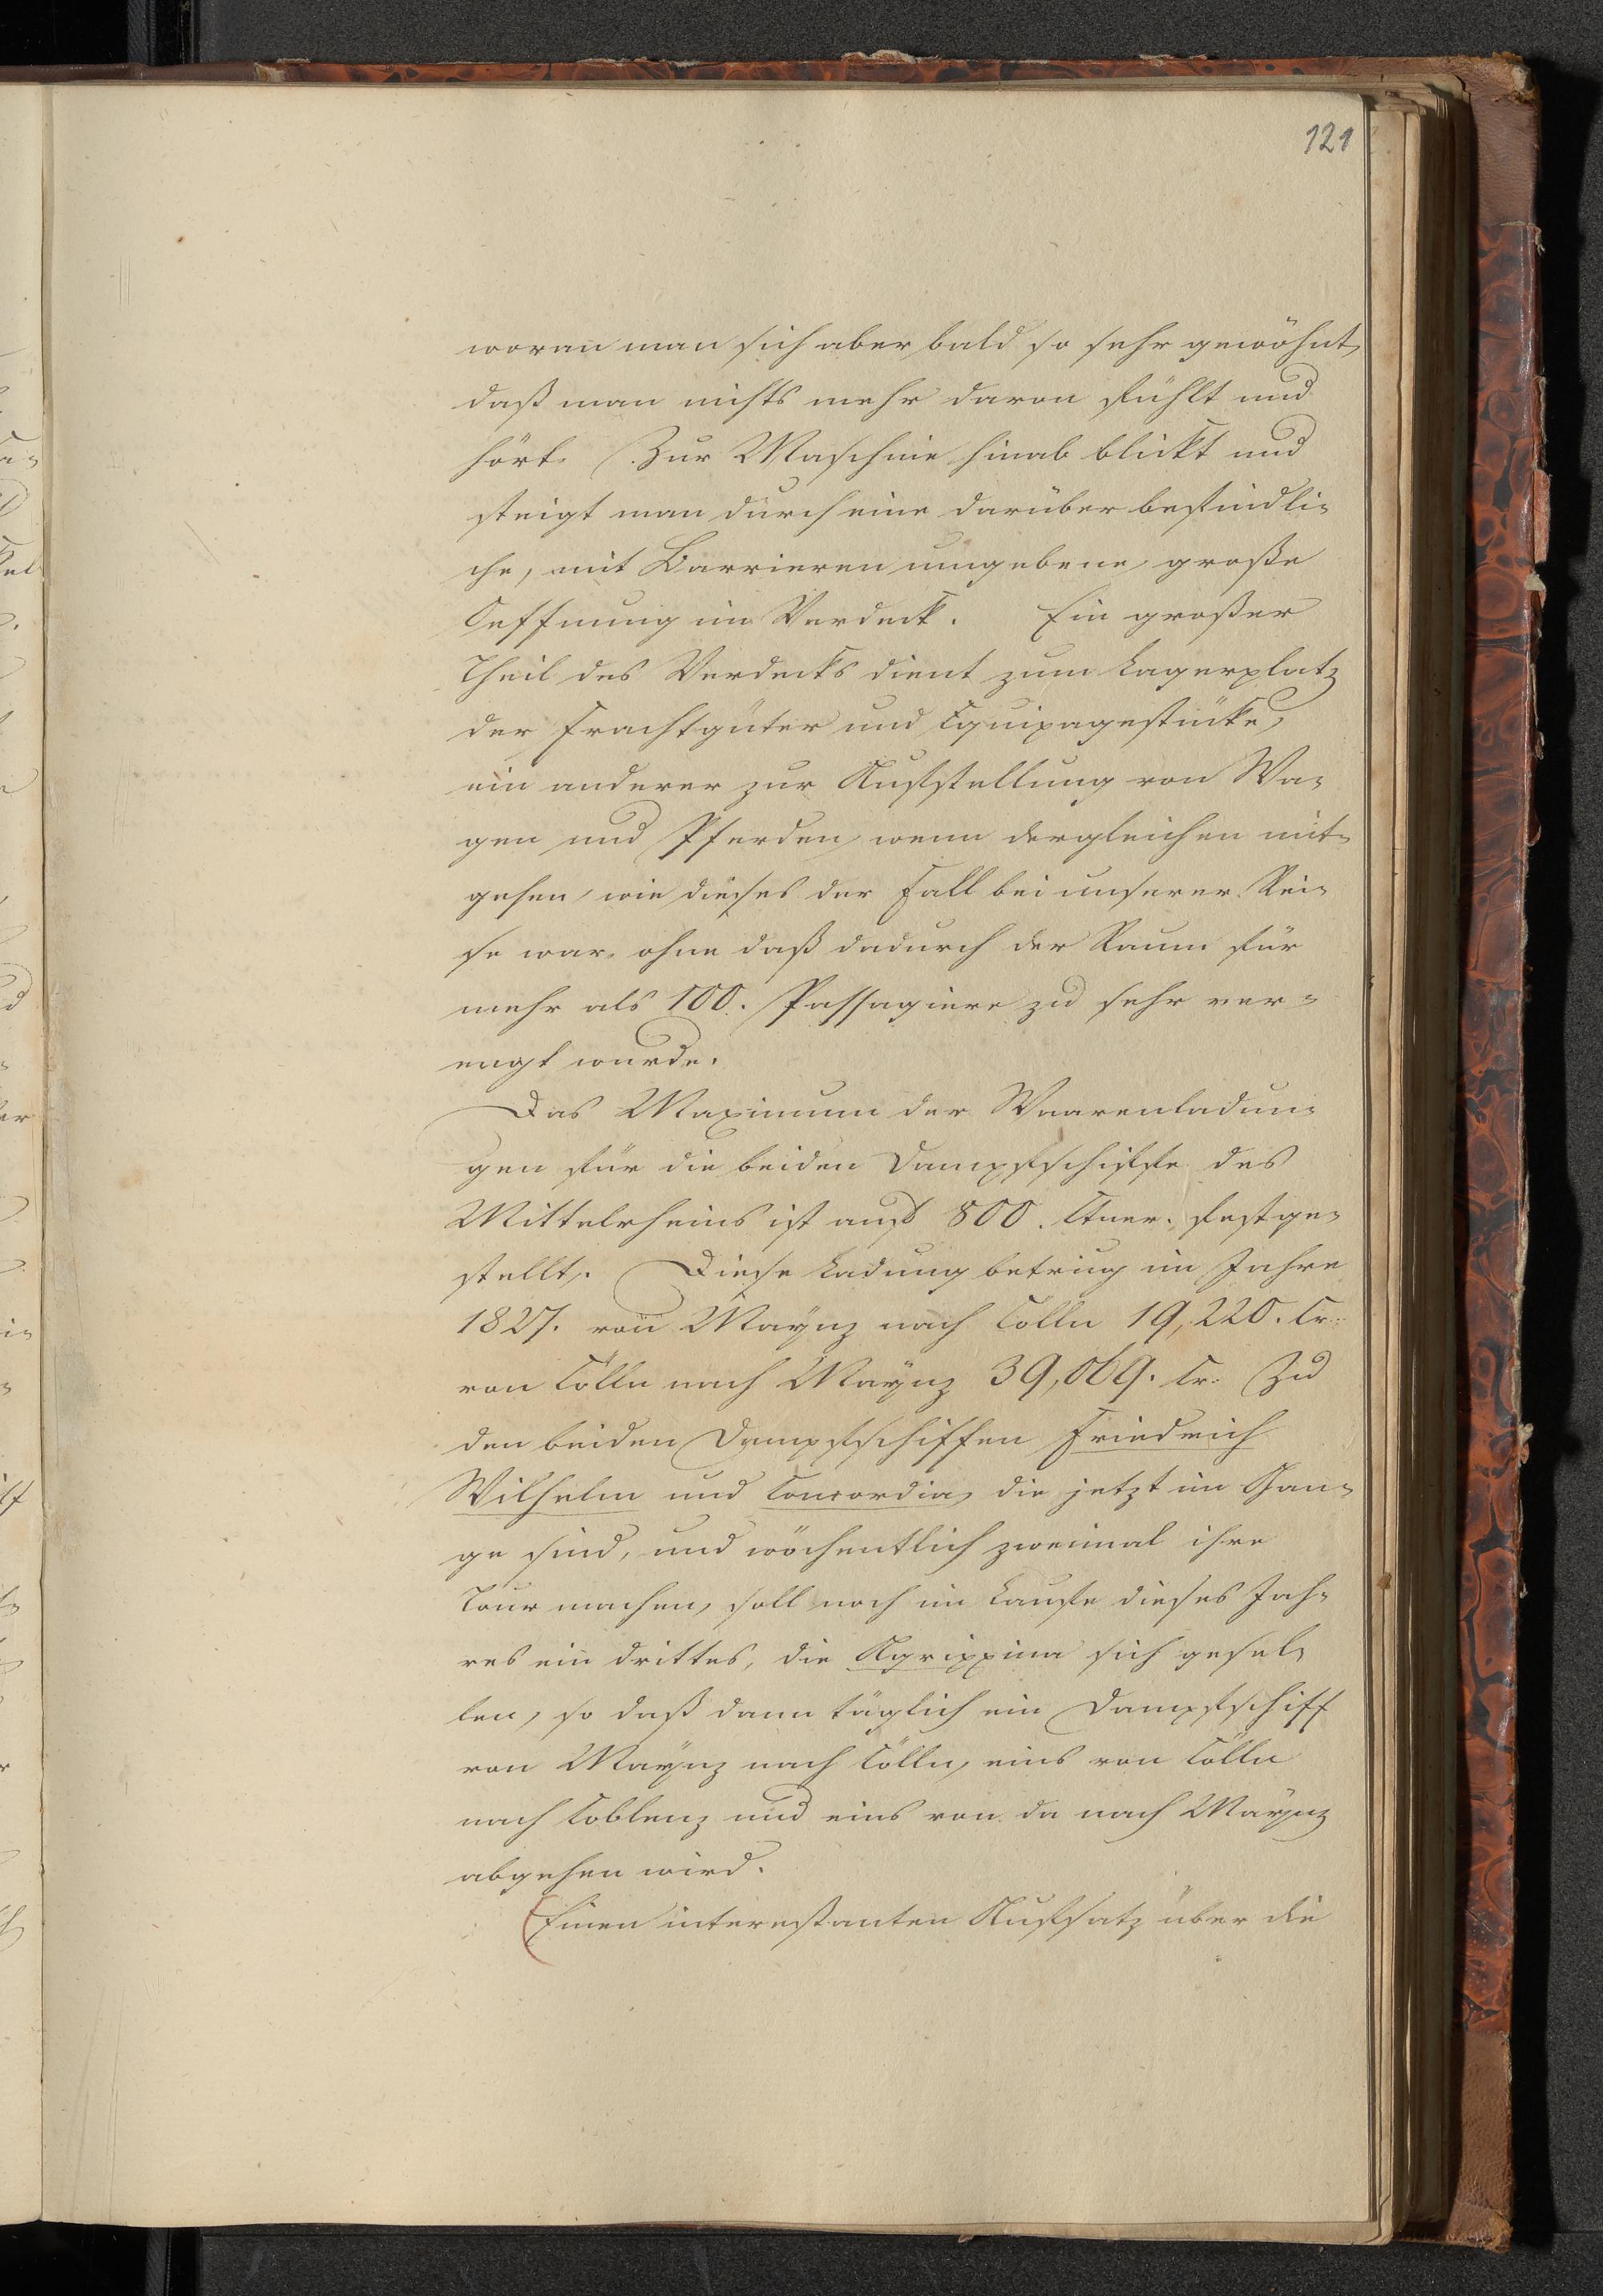 121
woran man sich aber bald so sehr gewöhnt,
daß man nichts mehr davon fühlt und
hört. Zur Maschine hinab blickt und
steigt man durch eine darüber befindli-
che, mit Barrieren umgebene, große
Oeffnung im Verdeck. Ein großer
Theil des Verdecks dient zum Lagerplatz
der Frachtgüter und Equipagestücke,
ein anderer zur Aufstellung von Wa-
gen und Pferden, wenn dergleichen mit-
gehen, wie dieses der Fall bei unserer Rei-
se war, ohne daß dadurch der Raum für
mehr als 100. Passagiere zu sehr ver-
engt wurde.
Das Maximum der Waarenladun-
gen für die beiden Dampfschiffe des
Mittelrheins ist auf 800. Ctner. festge-
stellt. Diese Ladung betrug im Jahre
1827. von Maynz nach Cölln 19,220. Cr.
von Cölln nach Maynz 39,069. Cr. Zu
den beiden Dampfschiffen Friedrich
Wilhelm und Concordia, die jetzt im Gan-
ge sind, und wöchentlich zweimal ihre
Tour machen, soll noch im Laufe dieses Jah-
res ein drittes, die Agrippina sich gesel-
len, so daß dann täglich ein Dampfschiff
von Maynz nach Cölln, eins von Cölln
nach Coblenz und eins von da nach Maynz
abgehen wird.
(Einen interessanten Aufsatz über die